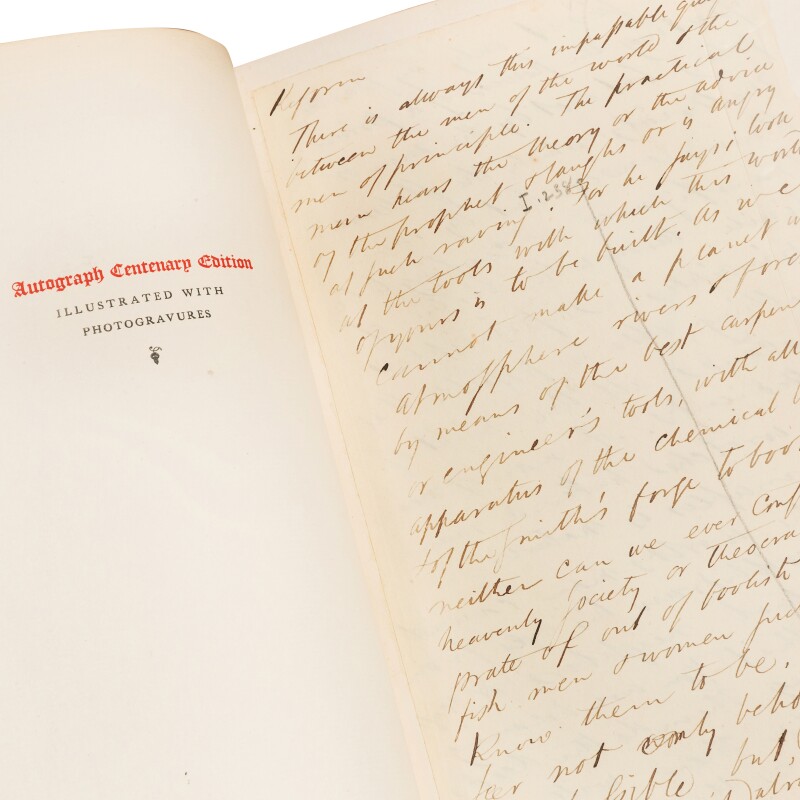 Autograph Centenary Edition
ILLUSTRATED WITH
PHOTOGRAVURES
Reform
There is always this impassable
between the men of the world & the
men of principle. The practical
man hears the theory or the advice
of the prophet & laughs or is angry
at such raving. For he says; look
I.238
at the tools with which this
of yours is to be built. As we
cannot make a planet
atmosphere rivers &
by means of the best
or engineer's tools, with all
apparatus of the chemical
& of the smith's forge to boot
neither can we ever
heavenly society
prate of out of foolish
men & women
know them to be.
not only
but,